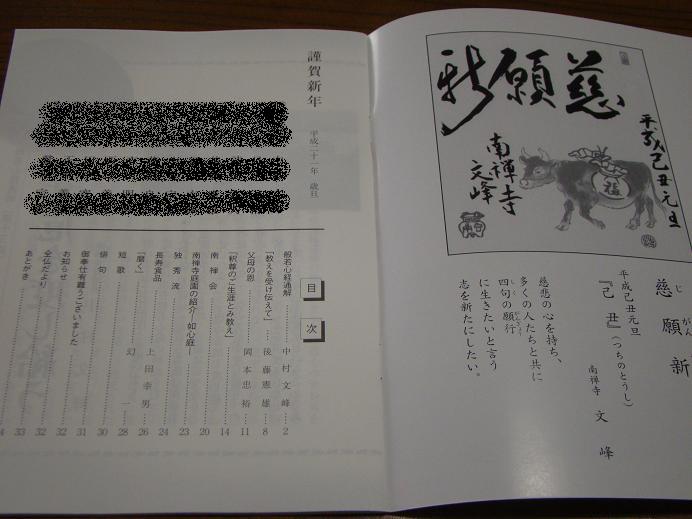 慈願新
平成己丑元旦
南禅寺
文峰
福
慈願新
じがん
平成己丑元旦
『己丑』(つちのとうし)
南禅寺 文峰
慈悲の心を持ち、
多くの人たちと共に
四句の願行
に生きたいと言う
志を新たにしたい。
謹賀新年
平成二十一年 歳旦
目次
般若心経通解 中村文峰 2
「教えを受け伝えて」 後藤憲雄 8
父母の恩 岡本忠裕 11
「釈尊のご生涯とみ教え」 14
南禅会 20
南禅寺庭園の紹介―如心庭― 23
独秀流 24
長寿食品 上田幸男 26
「磨く」 幻一 28
短歌 30
俳句 31
御奉仕有難うございました 32
お知らせ 32
全仏だより 33
あとがき